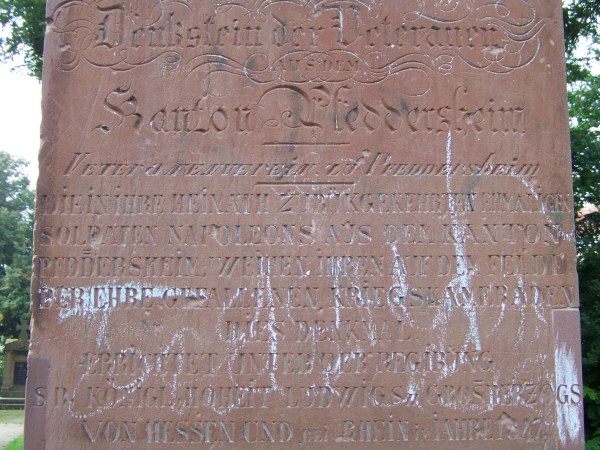 Denkstein der Veteranen
AUS DEM
Kanton Pfeddersheim
Veteranenverein zu Pfeddersheim
DIE IN IHRE HEIMATH ZURÜKGEKEHRTEN EHMALIGEN
SOLDATEN NAPOLEONS AUS DEM KANTON
PFEDDERSHEIM WEIHEN IHREN AUF DEM FELDE
DER EHRE GEFALLENEN KRIEGSKAMERADEN
DIES DENKMAL
ERRICHTET UNTER DER REGIRUNG
KÖNIGL HOHEIT LUDWIGS GROSHERZOGS
VON HESSEN UND bei RHEIN i. JAHRE 1847